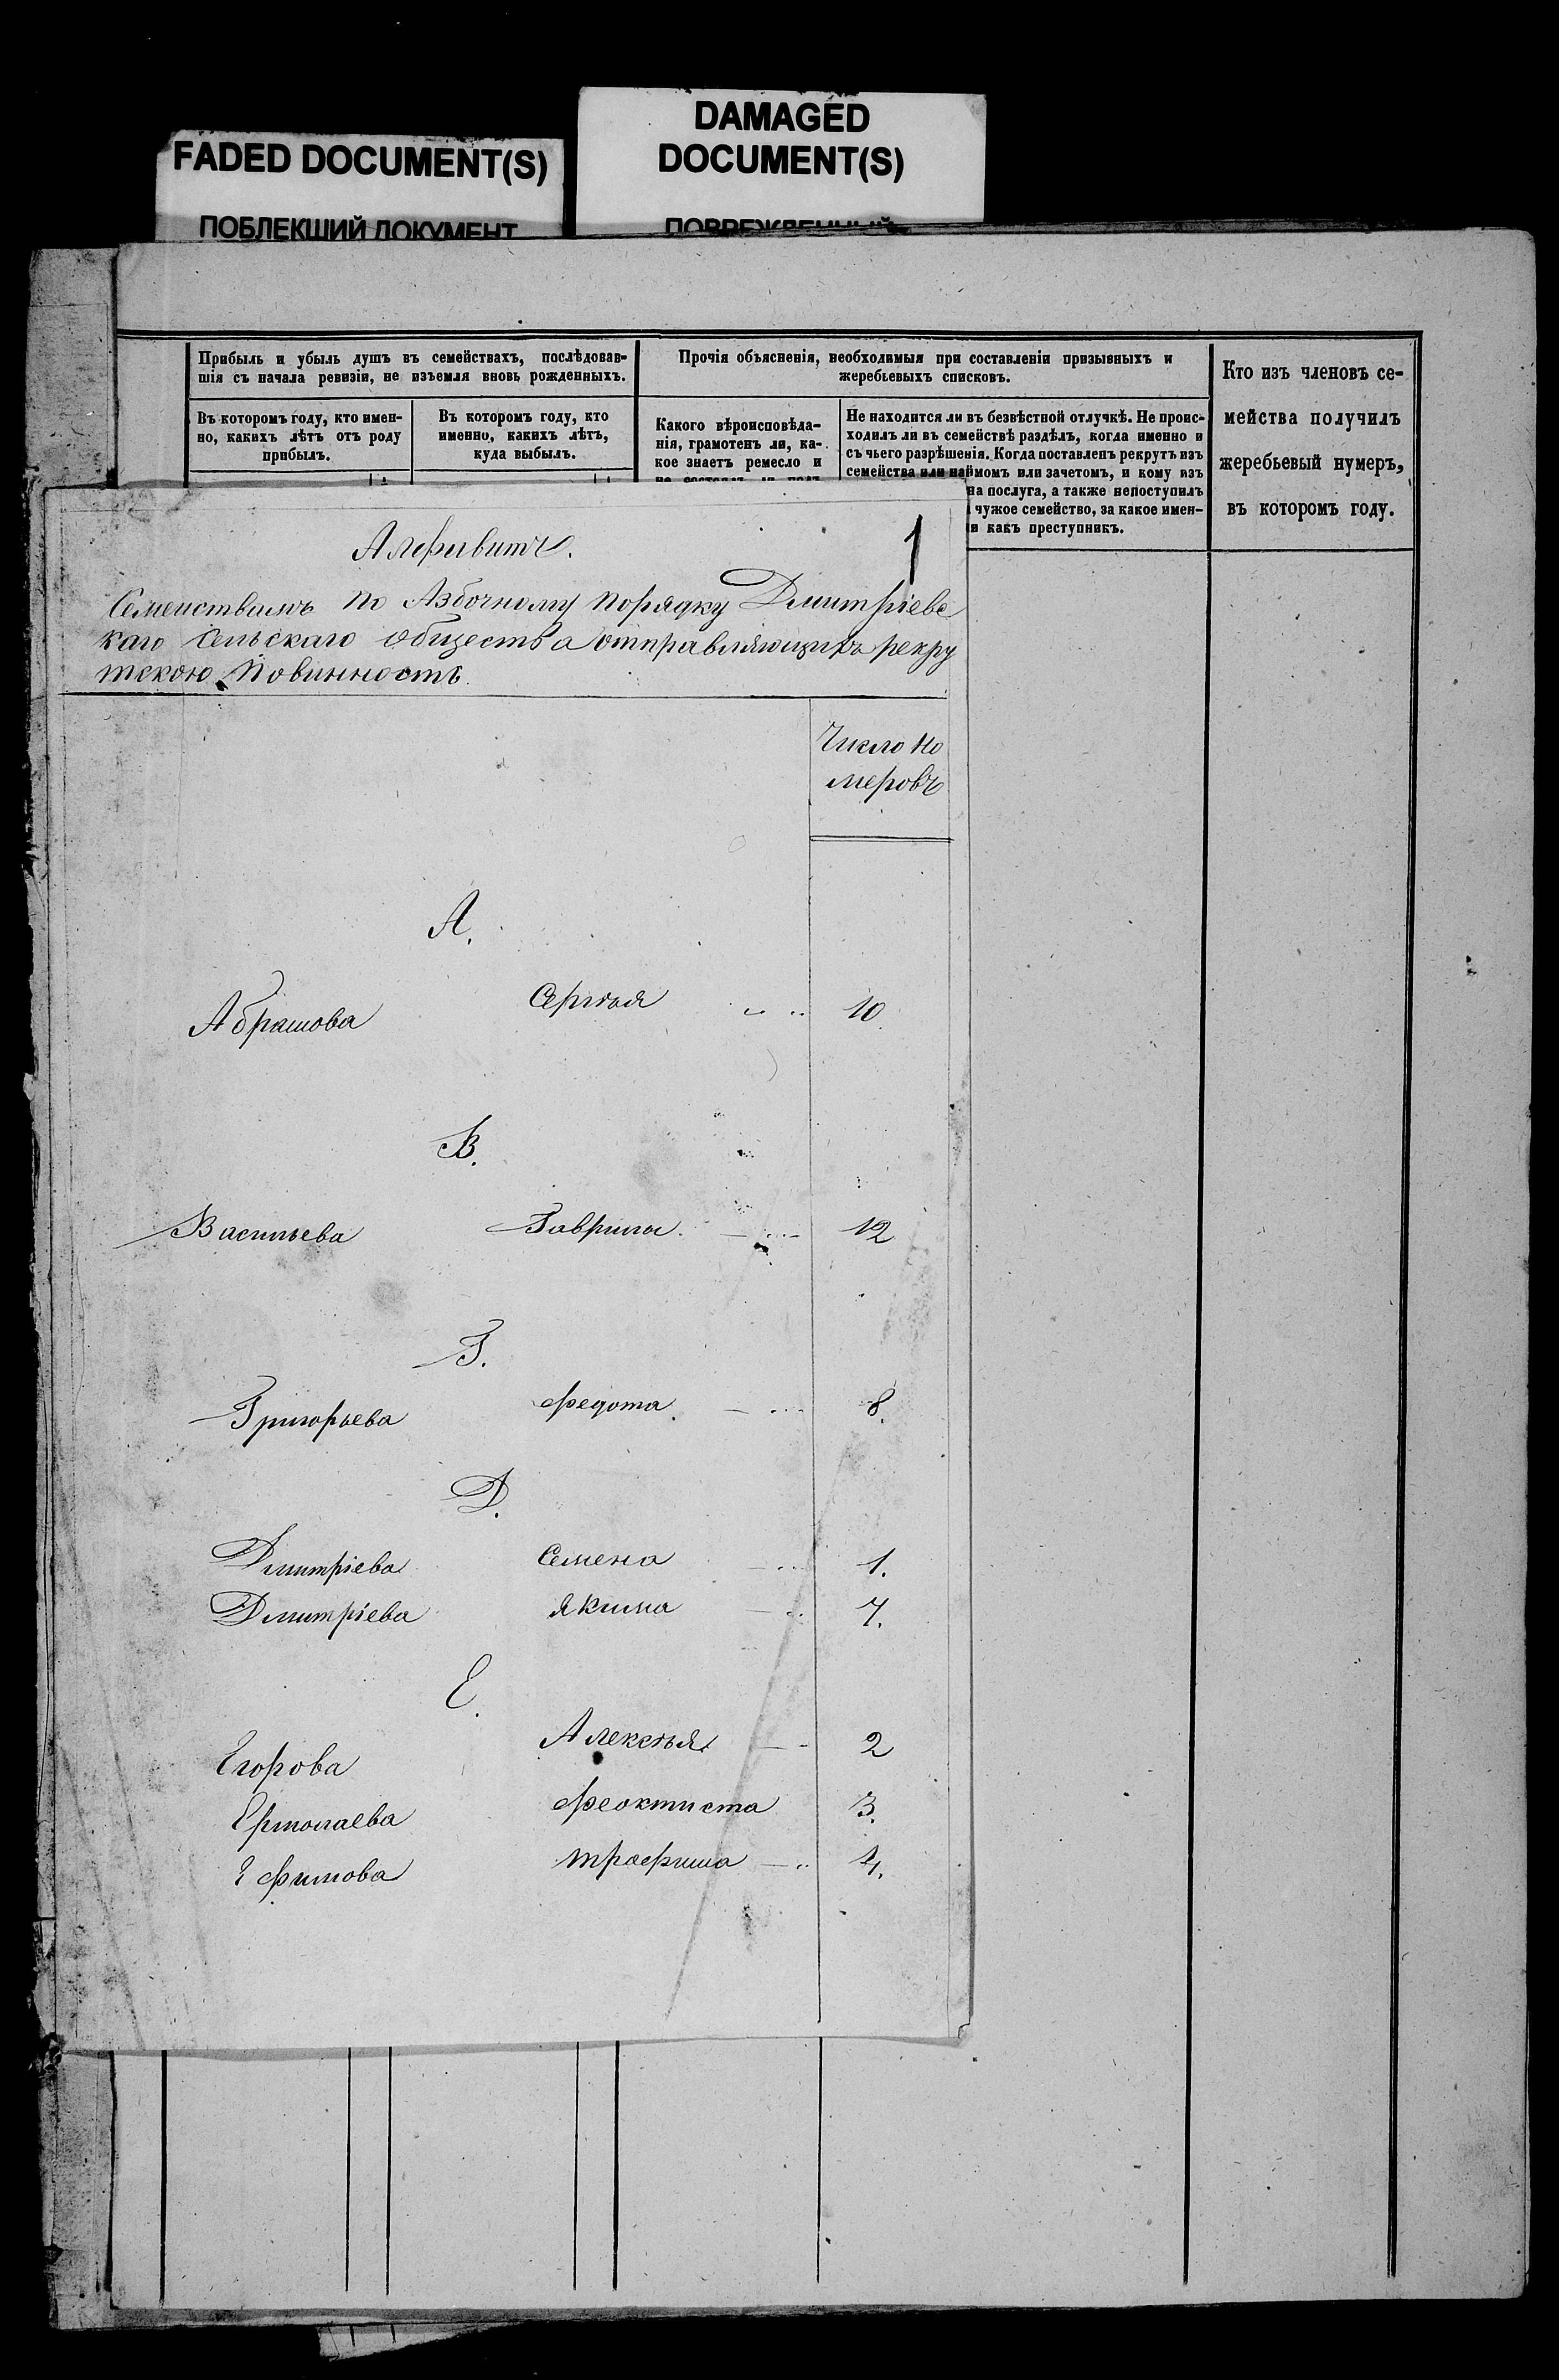 FADED DOCUMENT(S)
ПОБЛЕКШИЙ ДОКУМЕНТ
DAMAGED
DOCUMENT(S)
ПОВРЕЖДЕННЫЙ
Прибыль и убыль душъ въ семействахъ, послѣдовав-
шія съ начала ревизіи, не изъемля вновь рожденныхъ.
Въ которомъ году, кто имен-
но, какихъ лѣтъ отъ роду
прибылъ.
Въ которомъ году, кто
именно, какихъ лѣтъ,
куда выбылъ.
Прочія объясненія, необходимыя при составленіи призывныхъ и
жеребьевыхъ списковъ.
Какого вѣроисповѣда-
нія, грамотенъ ли, ка-
кое знаетъ ремесло и
не состоялъ ли подъ
Не находится ли въ безвѣстной отлучкѣ. Не проис-
ходилъ ли въ семействѣ раздѣлъ, когда именно и
съ чьего разрѣшенія. Когда поставленъ рекрутъ изъ
семейства или наймомъ или зачетомъ, и кому изъ
на послуга, а также непоступилъ
чужое семейство, за какое имен-
и какъ преступникъ.
Кто изъ членовъ се-
мейства получилъ
жеребьевый нумеръ,
въ которомъ году.
1
Алфивитъ.
Семеиствамъ по Азбочному порядку Дмитріевс
каго сельскаго общества отправляющихъ рекру
тскою повинность
Число но
меровъ
А.
Абрамова Сергѣя 10
В.
Васильева Гаврила 12
Г.
Григорьева Федота 8.
Д.
Дмитріева Семена 1.
Дмитріева Якима 7.
Е.
Егорова Алексѣя 2
Ермолаева Феоктиста 3.
Ефимова Трофима 4.